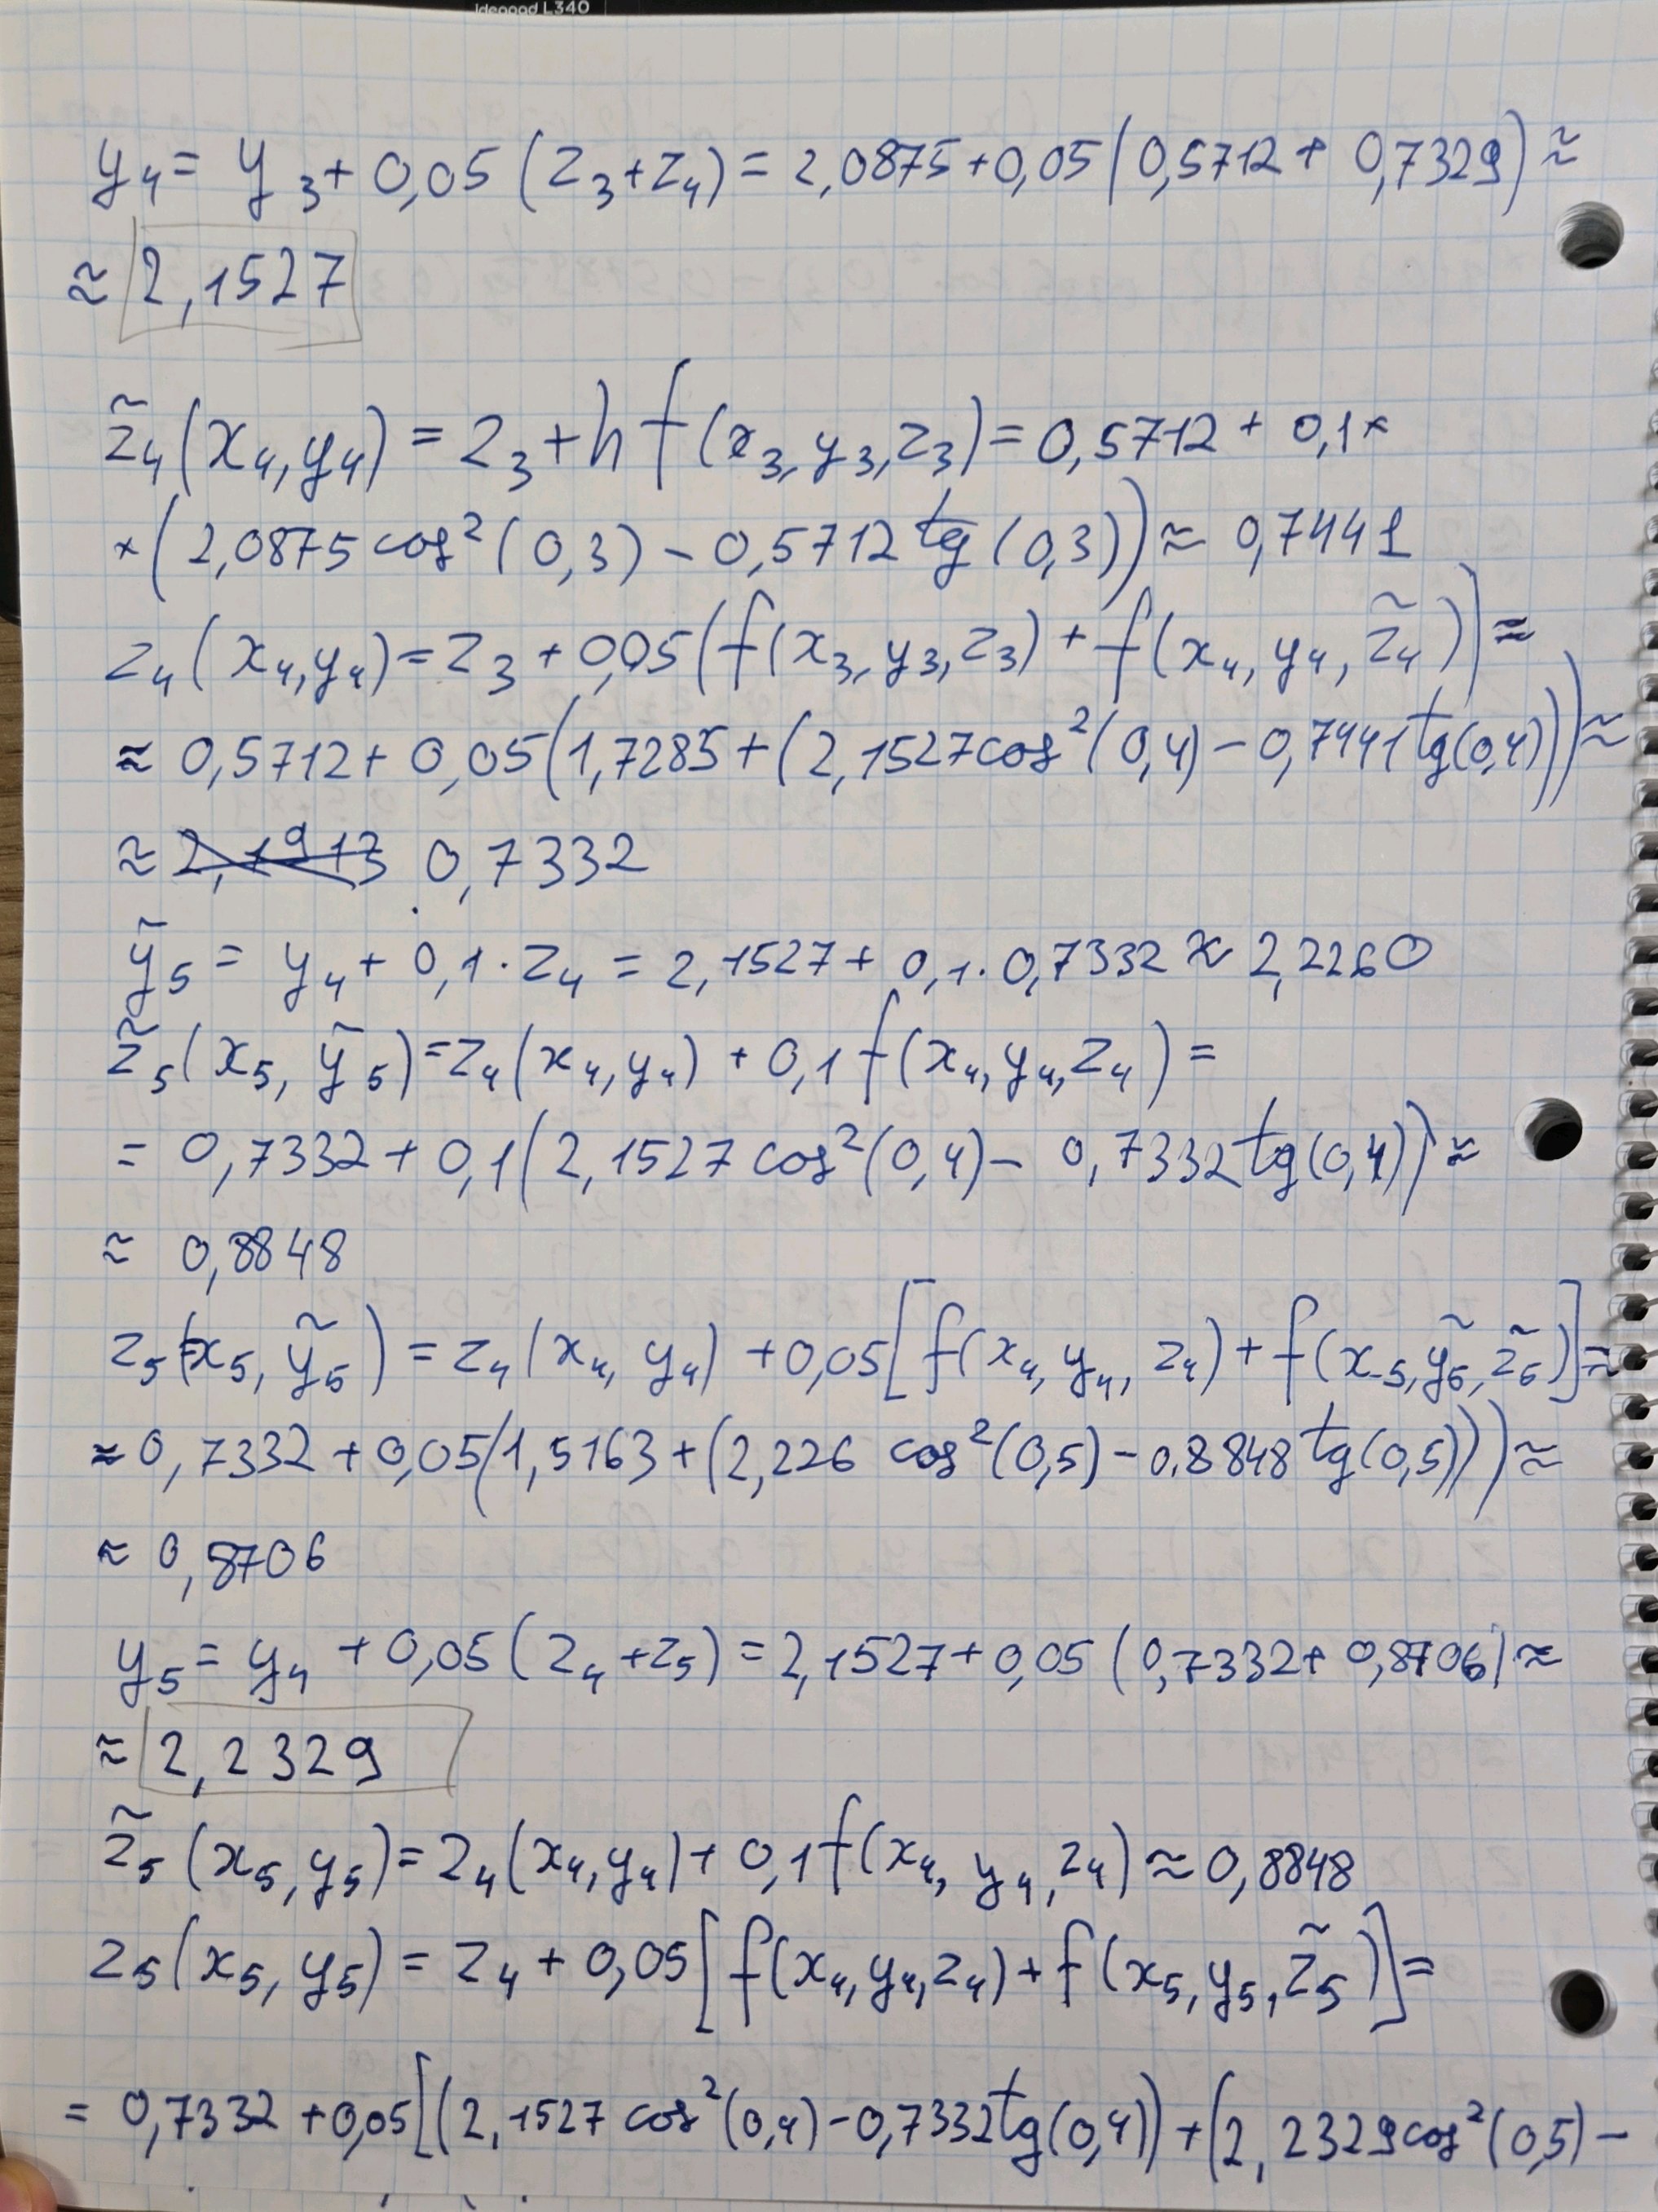 ideapad L340
y₄ = y₃ + 0,05 (z₃ + z₄) = 2,0875 + 0,05 (0,5712 + 0,7329) ≈
≈ 2,1527
z̃₄(x₄, y₄) = z₃ + h f(x₃, y₃, z₃) = 0,5712 + 0,1 ×
× (2,0875 cos²(0,3) − 0,5712 tg(0,3)) ≈ 0,7441
z₄(x₄, y₄) = z₃ + 0,05 (f(x₃, y₃, z₃) + f(x₄, y₄, z̃₄)) ≈
≈ 0,5712 + 0,05 (1,7285 + (2,1527 cos²(0,4) − 0,7441 tg(0,4))) ≈
≈ 0,7332
ỹ₅ = y₄ + 0,1 · z₄ = 2,1527 + 0,1 · 0,7332 ≈ 2,2260
z̃₅(x₅, ỹ₅) = z₄(x₄, y₄) + 0,1 f(x₄, y₄, z₄) =
= 0,7332 + 0,1 (2,1527 cos²(0,4) − 0,7332 tg(0,4)) ≈
≈ 0,8848
z₅(x₅, ỹ₅) = z₄(x₄, y₄) + 0,05 [f(x₄, y₄, z₄) + f(x₅, ỹ₅, z̃₅)] ≈
≈ 0,7332 + 0,05 (1,5163 + (2,226 cos²(0,5) − 0.8848 tg(0,5))) ≈
≈ 0,8706
y₅ = y₄ + 0,05 (z₄ + z₅) = 2,1527 + 0,05 (0,7332 + 0,8706) ≈
≈ 2,2329
z̃₅(x₅, y₅) = z₄(x₄, y₄) + 0,1 f(x₄, y₄, z₄) ≈ 0,8848
z₅(x₅, y₅) = z₄ + 0,05 [f(x₄, y₄, z₄) + f(x₅, y₅, z̃₅)] =
= 0,7332 + 0,05 [(2,1527 cos²(0,4) − 0,7332 tg(0,4)) + (2,2329 cos²(0,5) −